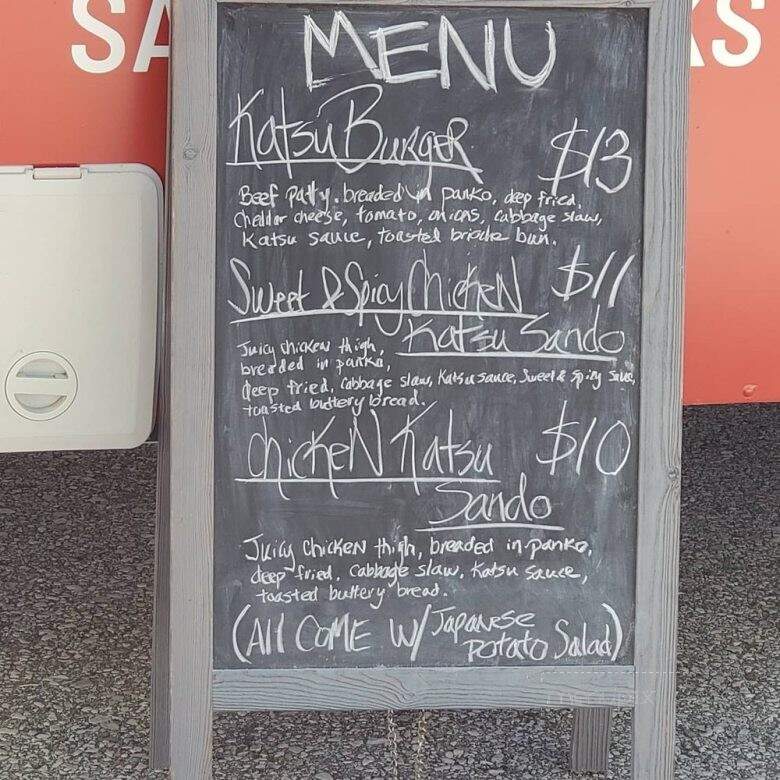 SA
KS
MENU
Katsu Burger $13
Beef patty, breaded in panko, deep fried,
Cheddar cheese, tomato, onions, cabbage slaw,
Katsu sauce, toasted brioche bun.
Sweet & Spicy Chicken $11
Katsu Sando
Juicy chicken thigh,
breaded in panko,
deep fried. Cabbage slaw, Katsu sauce, Sweet & Spicy Sauce,
toasted buttery bread.
Chicken Katsu $10
Sando
Juicy Chicken thigh, breaded in panko,
deep fried. Cabbage slaw. Katsu sauce,
toasted buttery bread.
(All COME W/ Japanese
Potato Salad)